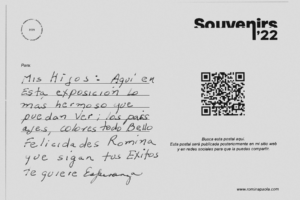 Souvenirs
'22
Para:
Mis Hijos: Aquí en
Esta exposición lo
mas hermoso que
puedan ver; los pais
ajes, colores todo Bello
Felicidades Romina
que sigan tus Exitos
te quiere Esperanza
Busca este postal aquí.
Esta postal será publicada posteriormente en mi sitio web
y en redes sociales para que la puedas compartir.